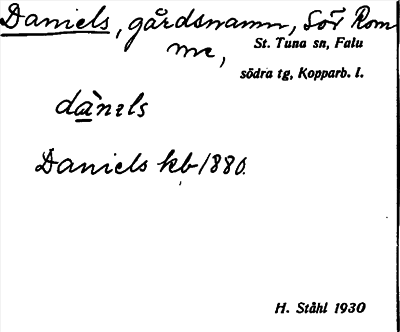 Daniels, gårdsnamn, Sör Rom
me,
St. Tuna sn, Falu
södra tg, Kopparb. l.
Daniels kb 1880.
H. Ståhl 1930